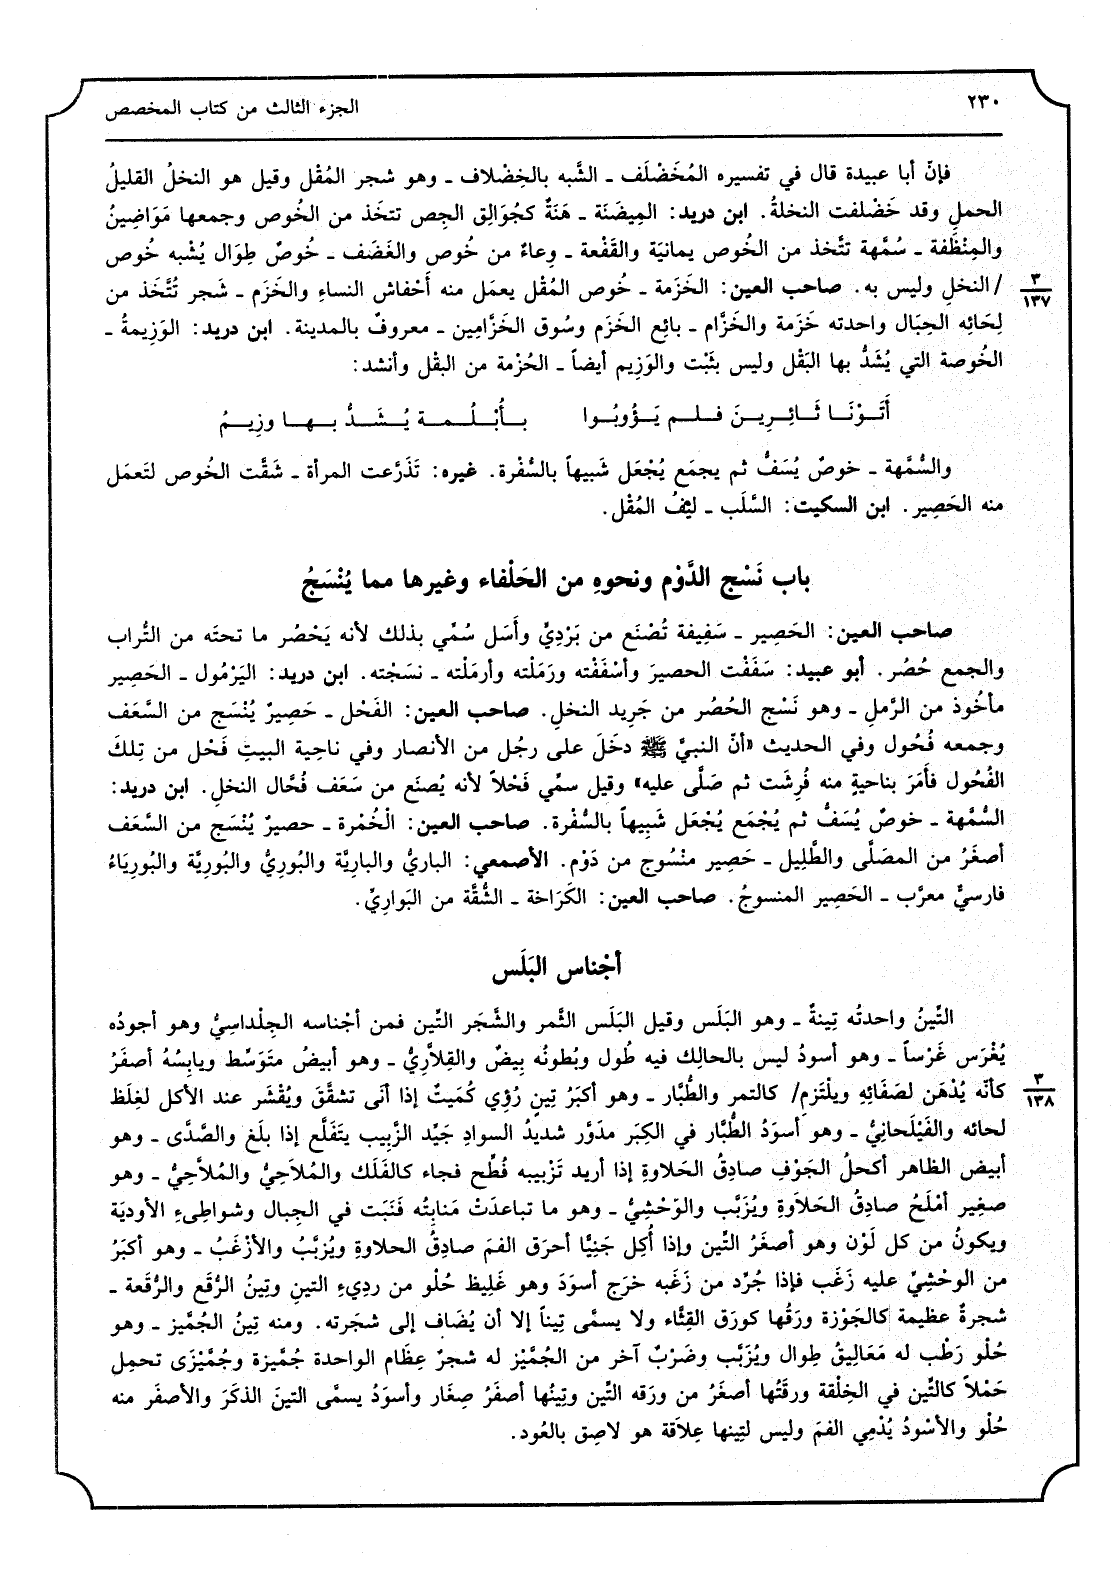 ٢٣٠
الجزء الثالث من كتاب المخصص
فإنّ أبا عبيدة قال في تفسيره المُخَضْلَف ـ الشَّبه بالخِضْلاف ـ وهو شجر المُقْل وقيل هو النخلُ القليلُ
الحملِ وقد خَضْلفت النخلةُ. ابن دريد: المِيضَنَة ـ هَنَةٌ كجُوَالِق الجِص تتخَذ من الخُوص وجمعها مَوَاضِينُ
والمِنْظَفة ـ سُمَّهة تتَّخذ من الخُوص يمانيَة والقَفْعة ـ وِعاءٌ من خُوص والغَضَف ـ خُوصٌ طِوَال يُشْبه خُوص
/ النخلِ وليس به. صاحب العين: الخَزَمة ـ خُوص المُقْل يعمَل منه أَحْفاش النساءِ والخَزَم ـ شَجر تُتَّخَذ من
٣
١٣٧
لِحَائِه الحِبَال واحدته خَزَمة والخَزَّام ـ بائِع الخَزَم وسُوق الخَزَّامِين ـ معروفٌ بالمدينة. ابن دريد: الوَزِيمةُ ـ
الخُوصة التي يُشَدُّ بها البَقْل وليس بثَبْت والوَزِيم أيضاً ـ الحُزْمة من البقْل وأنشد:
أَتَوْنَا ثَائِرِينَ فلم يَؤُوبُوا    بأُبْلُمة يُشَدُّ بها وزِيمُ
والسُّمَّهة ـ خوصٌ يُسَفُّ ثم يجمَع يُجْعَل شَبيهاً بالسُّفْرة. غيره: تَذَرَّعت المرأة ـ شَقَّت الخُوص لتَعمَل
منه الحَصِير. ابن السكيت: السَّلَب ـ ليْفُ المُقْل.
باب نَسْج الدَّوْم ونحوهِ من الحَلْفاء وغيرها مما يُنْسَجُ
صاحب العين: الحَصِير ـ سَفِيفة تُصْنَع من بَرْديٍّ وأَسَل سُمِّي بذلك لأنه يَحْصُر ما تحتَه من التُّراب
والجمع حُصُر. أبو عبيد: سَفَفْت الحصيرَ وأسْفَفْته ورَمَلْته وأرمَلْته ـ نسَجْته. ابن دريد: اليَرْمُول ـ الحَصِير
مأخُوذ من الرَّملِ ـ وهو نَسْج الحُصُر من جَرِيد النخلِ. صاحب العين: الفَحْل ـ حَصِيرٌ يُنْسَج من السَّعَف
وجمعه فُحُول وفي الحديث «أنّ النبيَّ ﷺ دخَلَ على رجُل من الأنصار وفي ناحِية البيتِ فَحْل من تِلكَ
الفُحُول فأمَرَ بناحيةٍ منه فُرِشَت ثم صَلَّى عليه» وقيل سمِّي فَحْلاً لأنه يُصنَع من سَعَف فُحَّال النخلِ. ابن دريد:
السُّمَّهة ـ خوصٌ يُسَفُّ ثم يُجْمَع يُجْعَل شَبِيهاً بالسُّفْرة. صاحب العين: الْخُمْرة ـ حصيرٌ يُنْسَج من السَّعَف
أصغَرُ من المصَلَّى والطَّلِيل ـ حَصِير منْسوج من دَوْم. الأصمعي: الباريُّ والباريَّة والبُوريُّ والبُوريَّة والبُورِيَاءُ
فارسيٌّ معرَّب ـ الحَصِير المنسوجُ. صاحب العين: الكَرَاخة ـ الشُّقَّة من البَوارِيِّ.
أجْناس البَلَس
التِّينُ واحدتُه تِينةٌ ـ وهو البَلَس وقيل البَلَس الثَّمر والشَّجَر التِّين فمن أجْناسه الجِلْداسِيُّ وهو أجودُه
يُغْرَس غَرْساً ـ وهو أسودُ ليس بالحالِك فيه طُول وبُطونُه بِيضٌ والقِلاَّرِيُّ ـ وهو أبيضُ متَوَسِّط ويابِسُهُ أصفَرُ
كأنّه يُدْهَن لصَفَائِهِ ويلْتَزِم/ كالتمر والطُّبَّار ـ وهو أكبَرُ تِينٍ رُؤِي كُمَيتٌ إذا أنَى تشقَّقَ ويُقْشَر عند الأكل لغِلَظ
٣
١٣٨
لحائه والفَيْلَحانِيُّ ـ وهو أسوَدُ الطُّبَّار في الكِبَر مدَوَّر شديدُ السوادِ جَيِّد الزَّبِيب يتَفَلَّع إذا بلَغ والصَّدَّى ـ وهو
أبيض الظاهر أكحلُ الجَوْفِ صادِقُ الحَلاوةِ إذا أريد تَزْبيبه فُطِّح فجاء كالفَلَك والمُلاَحِيُّ والمُلاَّحِيُّ ـ وهو
صغِير أمْلَحُ صادِقُ الحَلاَوةِ ويُزَبَّب والوَحْشِيُّ ـ وهو ما تباعدَتْ مَنابِتُه فَنَبَت في الجِبال وشواطِىءِ الأوديَة
ويكونُ من كل لَوْن وهو أصغَرُ التِّين وإذا أُكِل جَنِيًّا أحرَق الفمَ صادِقُ الحلاوةِ ويُزبَّبُ والأزْغَبُ ـ وهو أكبَرُ
من الوحْشِيِّ عليه زَغَب فإذا جُرِّد من زَغَبه خرَج أسوَدَ وهو غَلِيظ حُلْو من ردِيءِ التينِ وتِينُ الرُّقَع والرُّقَعة ـ
شجرةٌ عظيمة كالجَوْزة ورَقُها كورَق القِثَّاء ولا يسمَّى تِيناً إلا أن يُضَاف إلى شجَرته. ومنه تِينُ الجُمَّيز ـ وهو
حُلْو رَطْب له مَعَالِيقُ طِوال ويُزَبَّب وضَرْبٌ آخر من الجُمَّيْز له شجرٌ عِظَام الواحدة جُمَّيزة وجُمَّيْزَى تحمِل
حَمْلاً كالتِّين في الخِلْقة ورقَتُها أصغَرُ من ورَقه التِّين وتِينُها أصفَرُ صِغَار وأسوَدُ يسمَّى التينَ الذكَرَ والأصفَر منه
حُلْو والأسْودُ يُدْمِي الفمَ وليس لتِينها عِلاَقة هو لاصِق بالعُود.